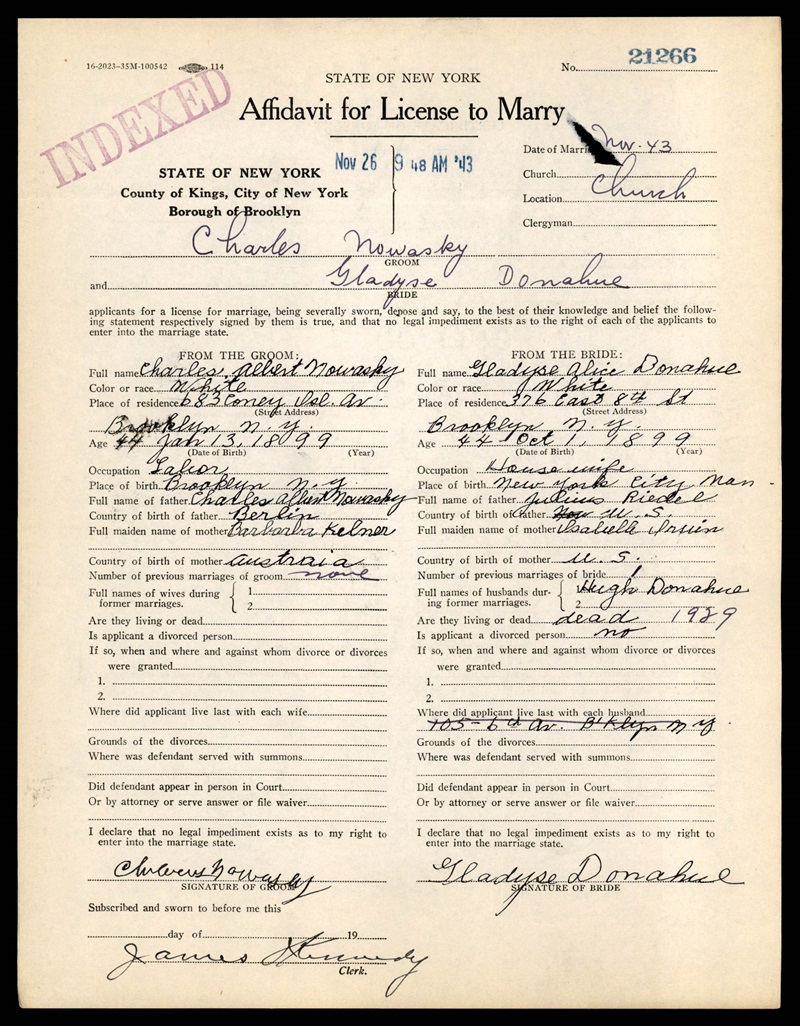 16-2023-35M-100542 114
No. 21266
INDEXED
STATE OF NEW YORK
Affidavit for License to Marry
STATE OF NEW YORK
County of Kings, City of New York
Borough of Brooklyn
Nov 26 9 48 AM '43
Date of Marri Nov. 43
Church
Location Church
Clergyman
Charles Nowasky
GROOM
and Gladyse Donahue
BRIDE
applicants for a license for marriage, being severally sworn, depose and say, to the best of their knowledge and belief the follow-
ing statement respectively signed by them is true, and that no legal impediment exists as to the right of each of the applicants to
enter into the marriage state.
FROM THE GROOM:
Full name Charles Albert Nowasky
Color or race White
Place of residence 683 Coney Isl. Av.
(Street Address)
Brooklyn N.Y.
Age 44 Jan 13, 1899
(Date of Birth) (Year)
Occupation Labor
Place of birth Brooklyn N.Y.
Full name of father Charles Albert Nowasky
Country of birth of father Berlin
Full maiden name of mother Barbarba Kelner
Country of birth of mother Austraia
Number of previous marriages of groom none
Full names of wives during former marriages. { 1
2
Are they living or dead
Is applicant a divorced person
If so, when and where and against whom divorce or divorces
were granted
1.
2.
Where did applicant live last with each wife
Grounds of the divorces
Where was defendant served with summons
Did defendant appear in person in Court
Or by attorney or serve answer or file waiver
I declare that no legal impediment exists as to my right to
enter into the marriage state.
Nowasky
SIGNATURE OF GROOM
Subscribed and sworn to before me this
day of 19
James Kennedy
Clerk.
FROM THE BRIDE:
Full name Gladyse Alice Donahue
Color or race White
Place of residence 376 East 84 St
(Street Address)
Brooklyn N.Y.
Age 44 Oct 1, 1899
(Date of Birth) (Year)
Occupation House wife
Place of birth New York City Man
Full name of father Julius Riedel
Country of birth of father U.S.
Full maiden name of mother Isabelle Irwin
Country of birth of mother U.S.
Number of previous marriages of bride 1
Full names of husbands dur- ing former marriages. { 1 Hugh Donahue
2
Are they living or dead dead 1929
Is applicant a divorced person no
If so, when and where and against whom divorce or divorces
were granted
1.
2.
Where did applicant live last with each husband
105-6th Av. B'klyn N.Y.
Grounds of the divorces
Where was defendant served with summons
Did defendant appear in person in Court
Or by attorney or serve answer or file waiver
I declare that no legal impediment exists as to my right to
enter into the marriage state.
Gladyse Donahue
SIGNATURE OF BRIDE